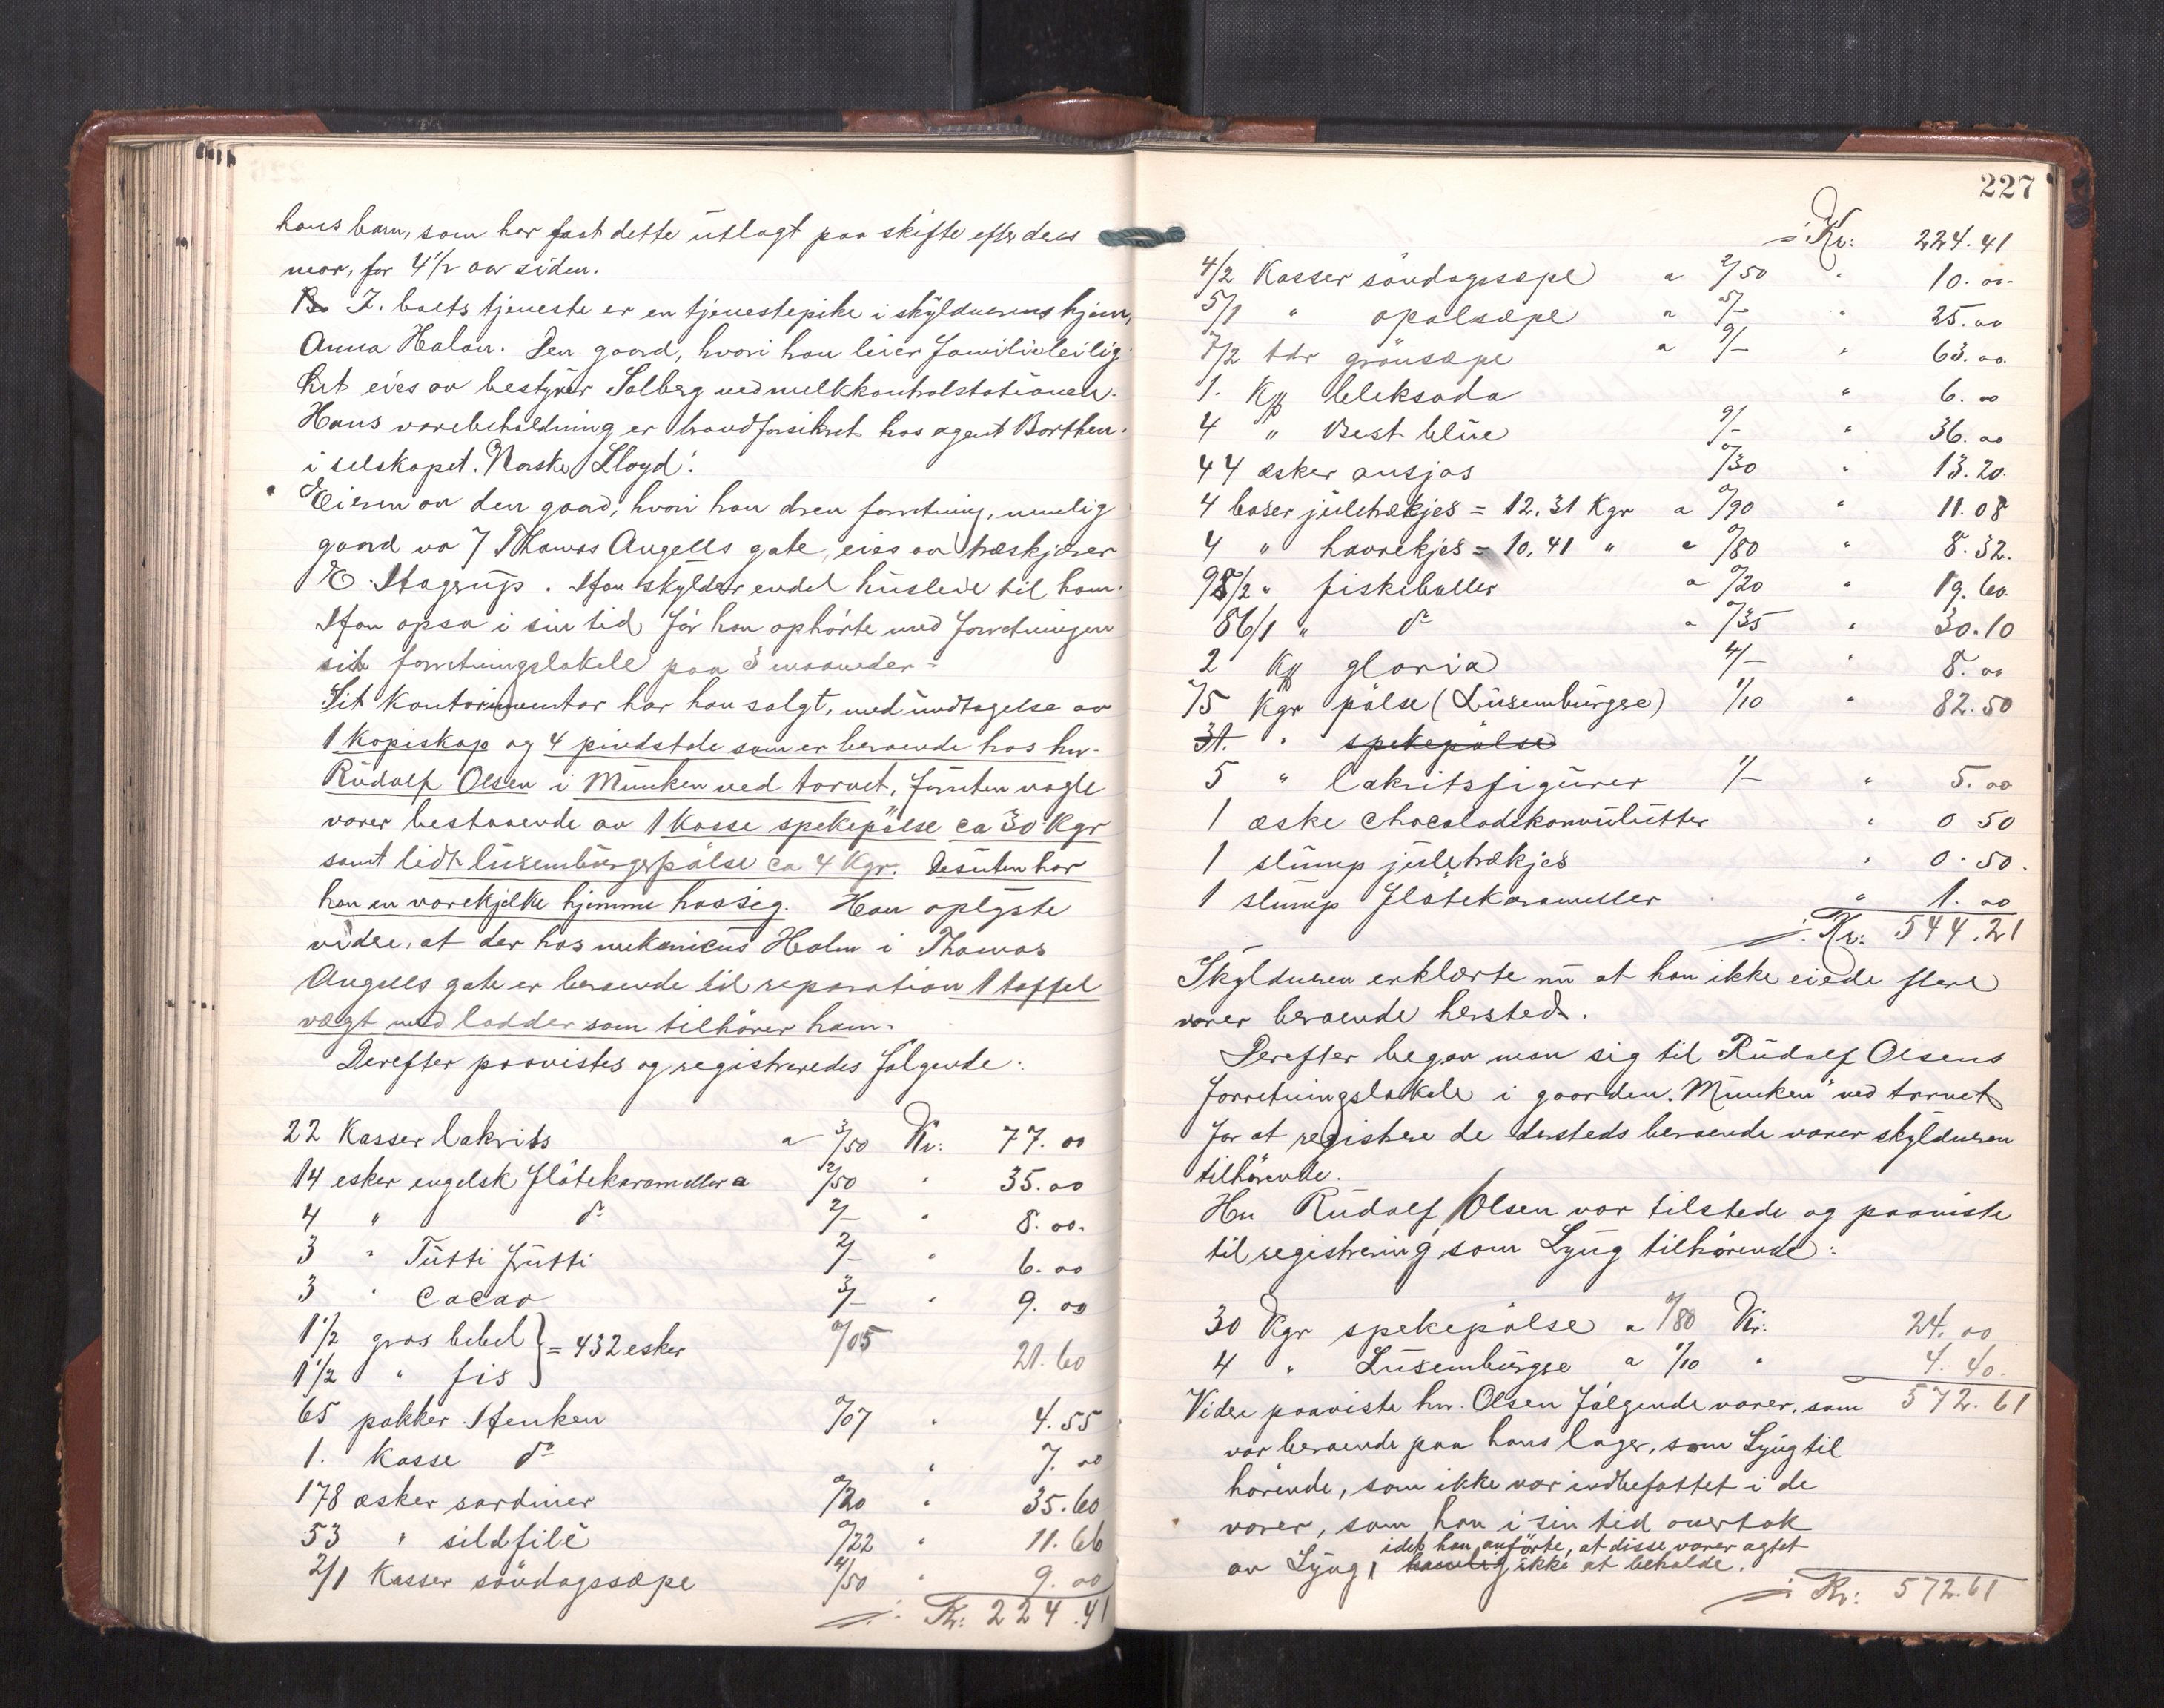 hans barn, som har faat dette utlagt paa skifte efter deres
mor, for 4 1/2 aar siden.
I boets tjeneste er en tjenestepike i skyldnerens hjem,
Anna Halan. Den gaard, hvori han leier familieleilig
het eies av bestyrer Solberg ved melkkontrolstationen.
Hans varebeholdning er brandforsikret hos agent Borthen
i selskapet "Norske Lloyd".
Eieren av den gaard, hvori han drev forretning, nemlig
gaard no 7 Thomas Angells gate, eies av træskjærer
E. Stagrup. Han skylder endel husleie til ham.
Han opsa i sin tid før han ophørte med forretningen
sit forretningslokale paa 3 maaneder.
Sit kontorinventar har han solgt, med undtagelse av
1 kopiskap og 4 pindstole som er beroende hos hr.
Rudolf Olsen i Munken ved torvet, foruten nogle
varer bestaaende av 1 kasse spekepølse ca 30 Kgr
samt lidt luxemburgerpølse ca 4 Kgr. Desuten har
han en varekjelke hjemme hos sig. Han oplyste
videre, at der hos mekanicus Holm i Thomas
Angells gate er beroende til reparation 1 taffel
vægt med lodder som tilhører ham.
Derefter paavistes og registreredes følgende:
22 Kasser lakrits a 3/50 Kr: 77.00
14 esker engelsk fløtekarameller a 2/50 " 35.00
4 " do 2/- " 8.00
3 " Tutti frutti 2/- " 6.00
3 " Cacao 3/- " 9.00
1 1/2 gros bebel } = 432 esker 0/05 21.60
1 1/2 " fis
65 pakker Henken 0/07 " 4.55
1. Kasse do " 7.00
178 æsker sardiner 0/20 " 35.60
53 " sildfile 0/22 " 11.66
2/1 Kasser söndagssæpe 4/50 " 9.00
Kr: 224.41
227
Kr: 224.41
4/2 Kasser söndagssæpe a 2/50 " 10.00
5/1 " opalsæpe a 5/- " 25.00
7/2 tdr grönsæpe a 9/- " 63.00
1. Kp bleksoda " 6.00
4 " Best blue 9/- " 36.00
44 æsker ansjos 0/30 " 13.20
4 baser juletrækjes = 12,31 Kgr a 0/90 " 11.08
4 " havrekjes = 10,41 " a 0/80 " 8.32
98/2 " fiskeboller a 0/20 " 19.60
86/1 " do a 0/35 " 30.10
2 Kp gloria 4/- " 8.00
75 Kgr pølse (Luxemburger) 1/10 " 82.50
31. " spekepølse
5 " lakritsfigurer 1/- " 5.00
1 æske chocoladekonvulutter " 0 50
1 slump juletrækjes " 0.50
1 slump fløtekarameller " 1.00
Kr: 544.21
Skyldneren erklærte nu at han ikke eiede flere
varer beroende hersteds.
Derefter begav man sig til Rudolf Olsens
forretningslokale i gaarden "Munken" ved torvet
for at registrere de dersteds beroende varer skyldneren
tilhørende.
Hr Rudolf Olsen var tilstede og paaviste
til registrering som Lyng tilhørende:
30 Kgr spekepølse a 0/80 Kr: 24.00
4 " Luxemburger a 1/10 " 4.40
Videre paaviste hr. Olsen følgende varer, som 572.61
var beroende paa hans lager, som Lyng til
hørende, som ikke var indbefattet i de
varer, som han i sin tid overtok
idet han anførte, at disse varer agtet
av Lyng, ikke at beholde.
Kr: 572.61